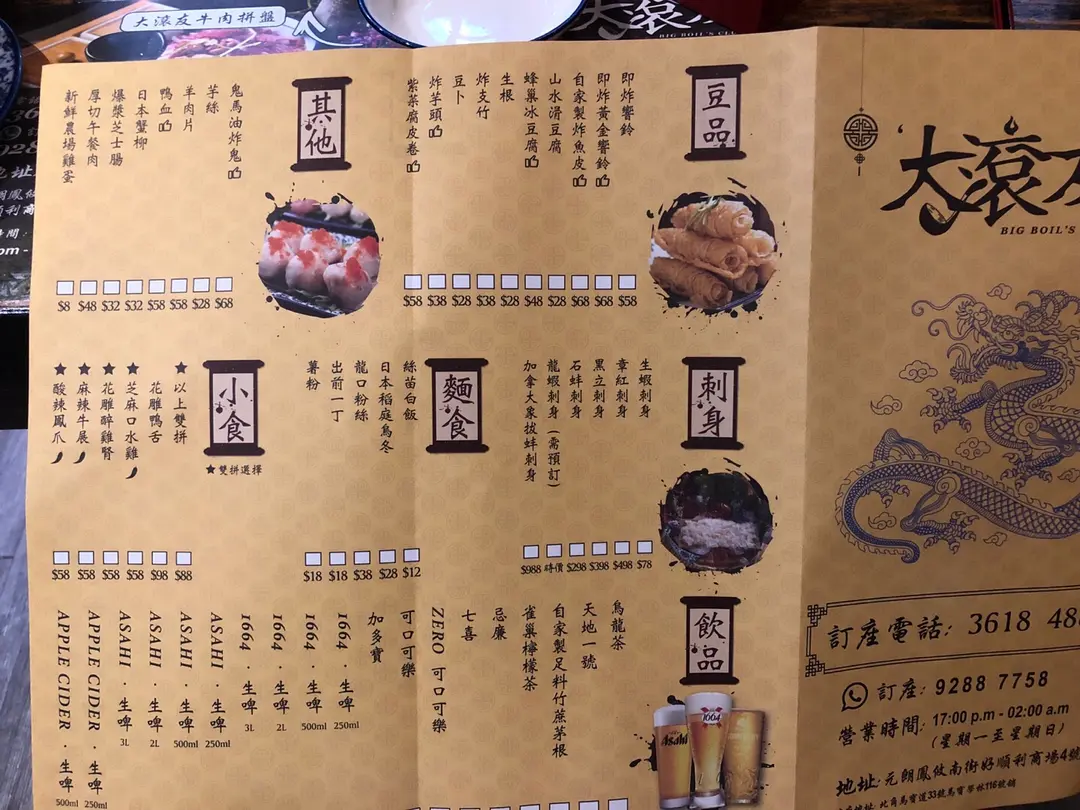 大滾友牛肉拼盤
豆品
即炸響鈴
即炸黃金響鈴
自家製炸魚皮
山水滑豆腐
蜂巢冰豆腐
生根
炸支竹
豆卜
炸芋頭
紫菜腐皮卷
$58 $38 $28 $38 $28 $48 $28 $68 $68 $58
其他
鬼馬油炸鬼
芋絲
羊肉片
鴨血
日本蟹柳
爆漿芝士腸
厚切午餐肉
新鮮農場雞蛋
$8 $48 $32 $32 $58 $58 $28 $68
刺身
生蝦刺身
章紅刺身
黑立刺身
石蚌刺身
龍蝦刺身(需預訂)
加拿大象拔蚌刺身
$988 時價 $298 $398 $498 $78
麵食
絲苗白飯
日本稻庭烏冬
龍口粉絲
出前一丁
薯粉
$18 $18 $38 $28 $12
小食
★雙拼選擇
★以上雙拼
花雕鴨舌
★芝麻口水雞
★花雕醉雞腎
★麻辣牛展
★酸辣鳳爪
$58 $58 $58 $58 $98 $88
飲品
烏龍茶
天地一號
自家製足料竹蔗茅根
雀巢檸檬茶
忌廉
七喜
ZERO 可口可樂
可口可樂
加多寶
1664·生啤 250ml
1664·生啤 500ml
1664·生啤 2L
1664·生啤 3L
ASAHI·生啤 250ml
ASAHI·生啤 500ml
ASAHI·生啤 2L
ASAHI·生啤 3L
APPLE CIDER·生啤 250ml
APPLE CIDER·生啤 500ml
Asahi
1664
大滾友
BIG BOIL'S
訂座電話: 3618 48
訂座: 9288 7758
營業時間: 17:00 p.m - 02:00 a.m
(星期一至星期日)
地址:元朗鳳攸南街好順利商場4號
北角馬寶道33號馬寶學林116號舖